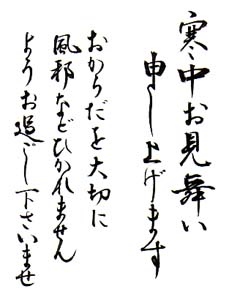 寒中お見舞い
申し上げます
おからだを大切に
風邪などひかれません
ようお過ごし下さいませ